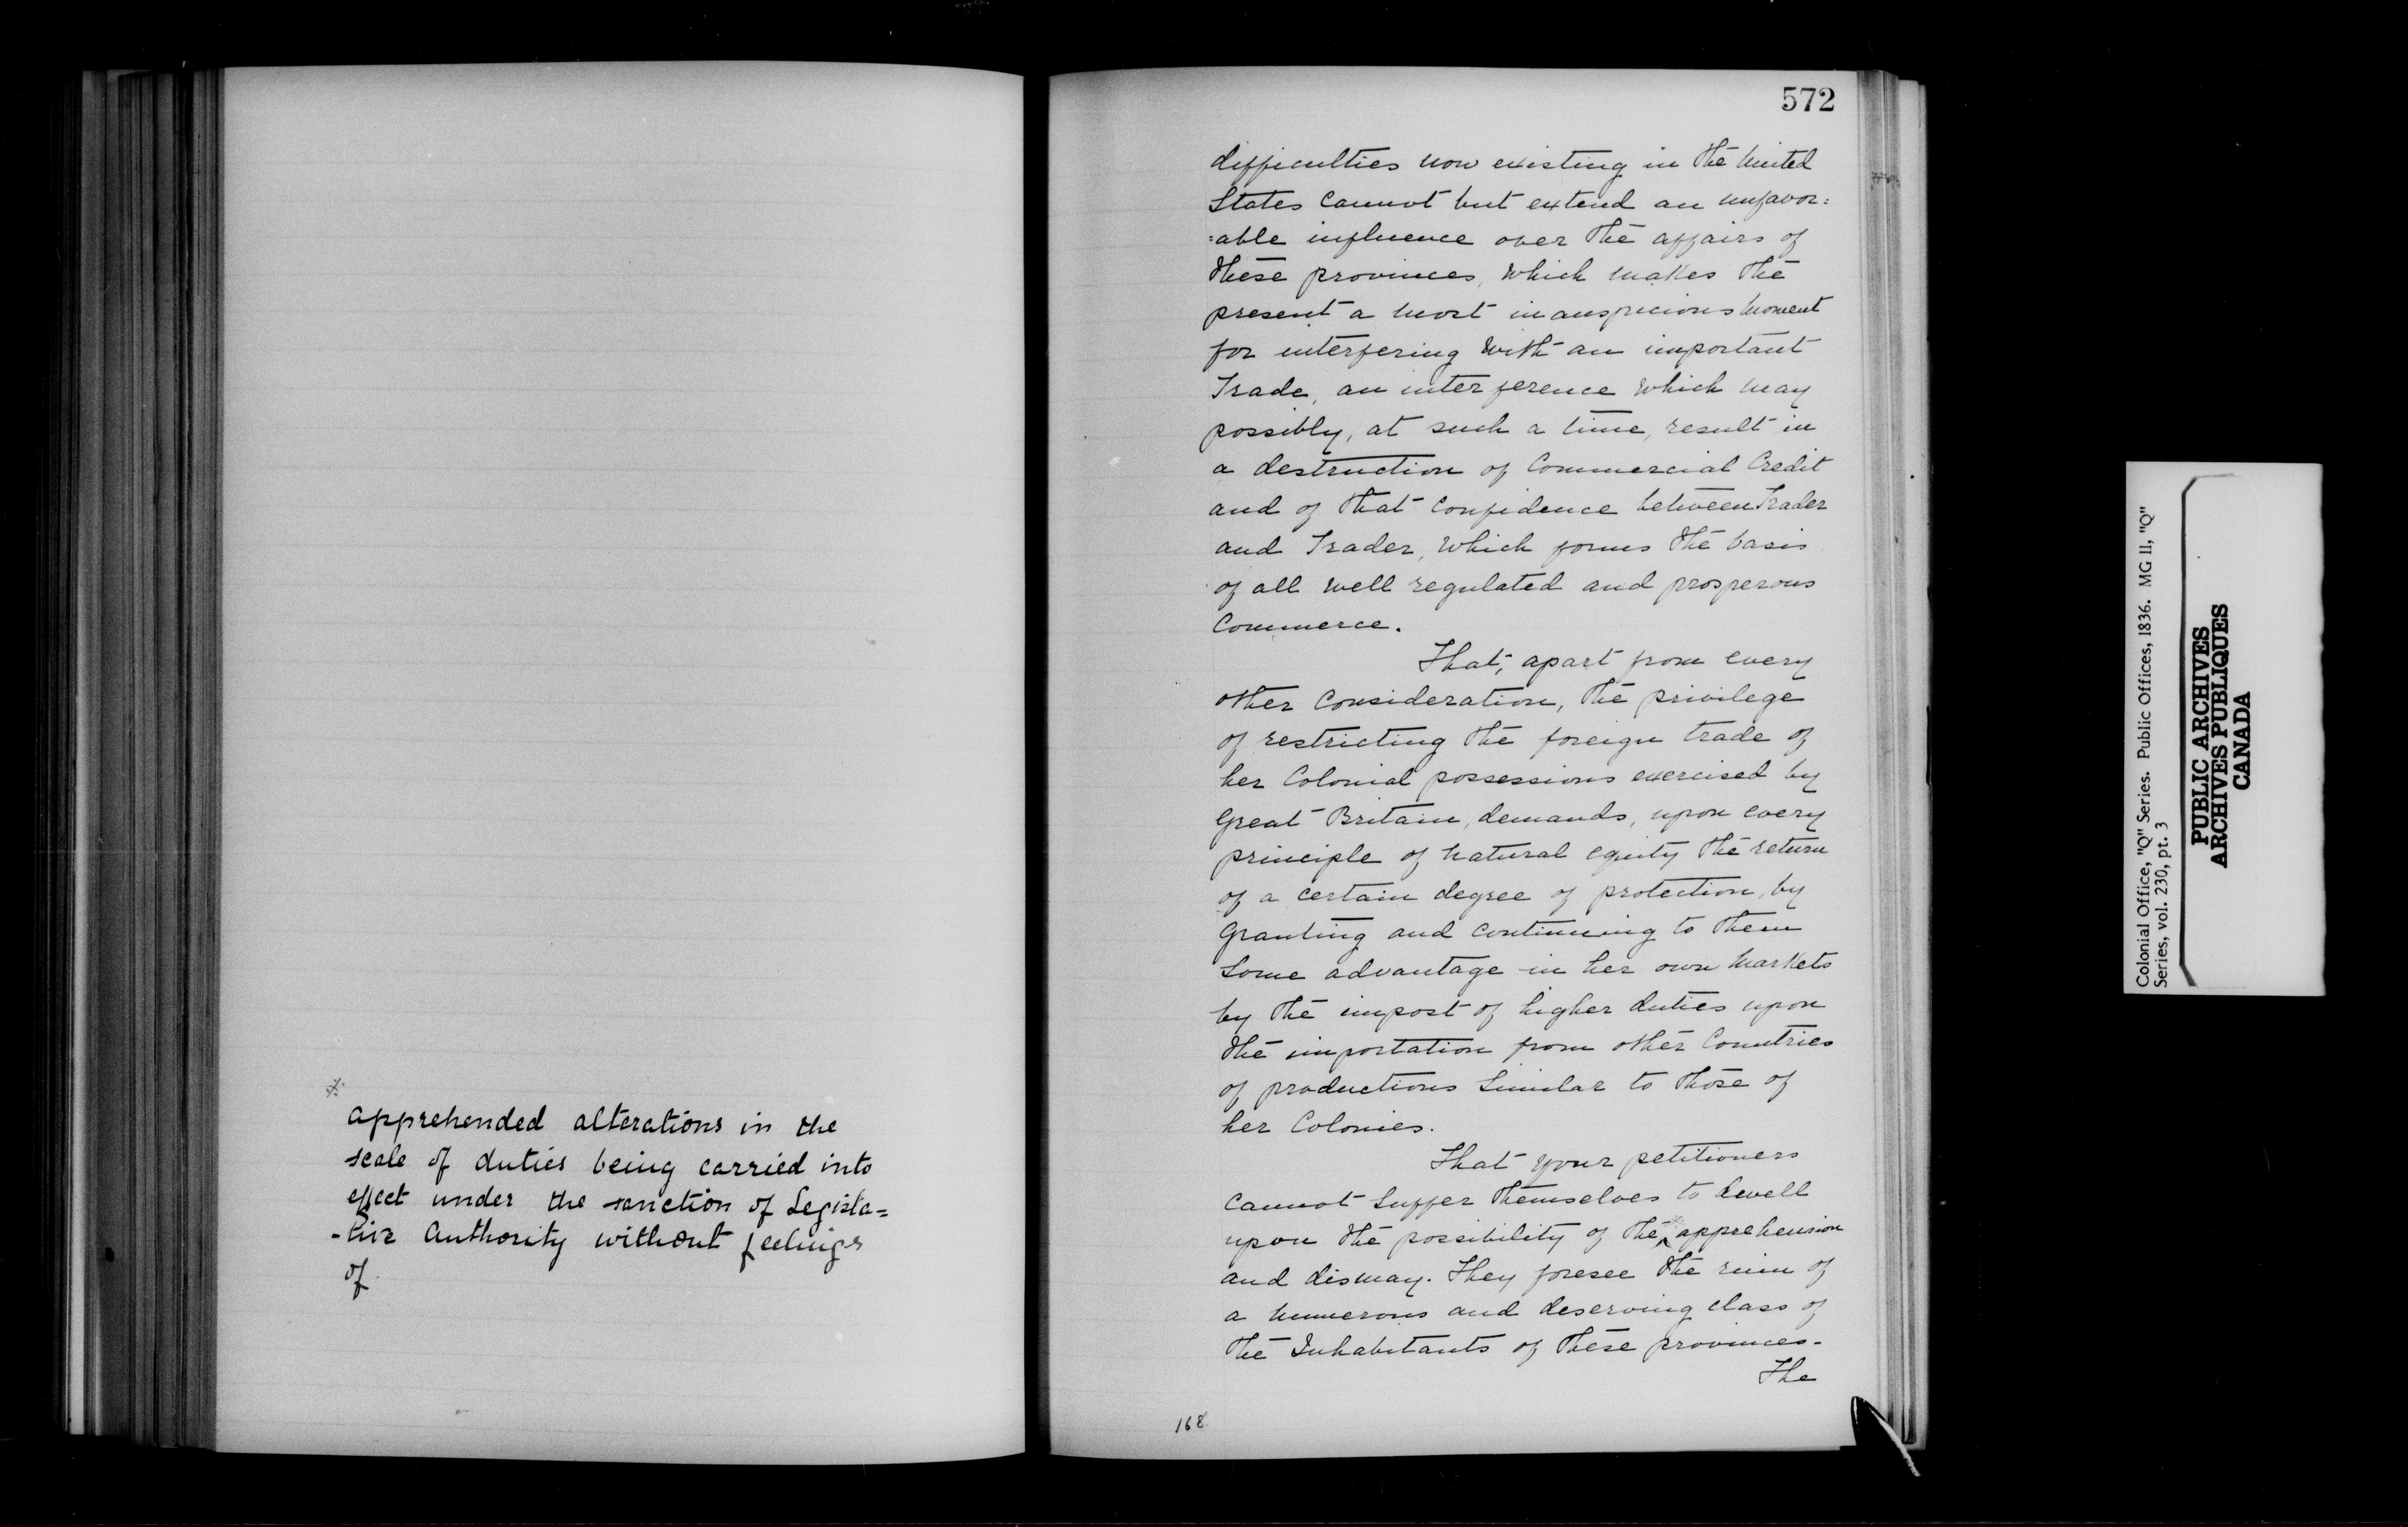 *
apprehended alterations in the
scale of duties being carried into
effect under the sanction of Legisla=
-tive Authority without feelings
of
572
difficulties now existing in the United
States cannot but extend an unfavor=
=able influence over the affairs of
these provinces, which makes the
present a most inauspicious moment
for interfering with an important
Trade, an interference which may
possibly, at such a time, result in
a destruction of Commercial Credit
and of that confidence between Trader
and Trader, which forms the basis
of all well regulated and prosperous
Commerce.
That, apart from every
other consideration, the privilege
of restricting the foreign trade of
her Colonial possessions exercised by
Great Britain, demands, upon every
principle of natural equity the return
of a certain degree of protection, by
granting and continuing to them
some advantage in her own markets
by the impost of higher duties upon
the importation from other Countries
of productions similar to those of
her Colonies.
That your petitioners
cannot suffer themselves to dwell
upon the possibility of the * apprehension
and dismay. They foresee the ruin of
a numerous and deserving class of
the Inhabitants of these provinces.
The
168
Colonial Office, "Q" Series. Public Offices, 1836. MG 11, "Q"
Series, vol. 230, pt. 3
PUBLIC ARCHIVES
ARCHIVES PUBLIQUES
CANADA